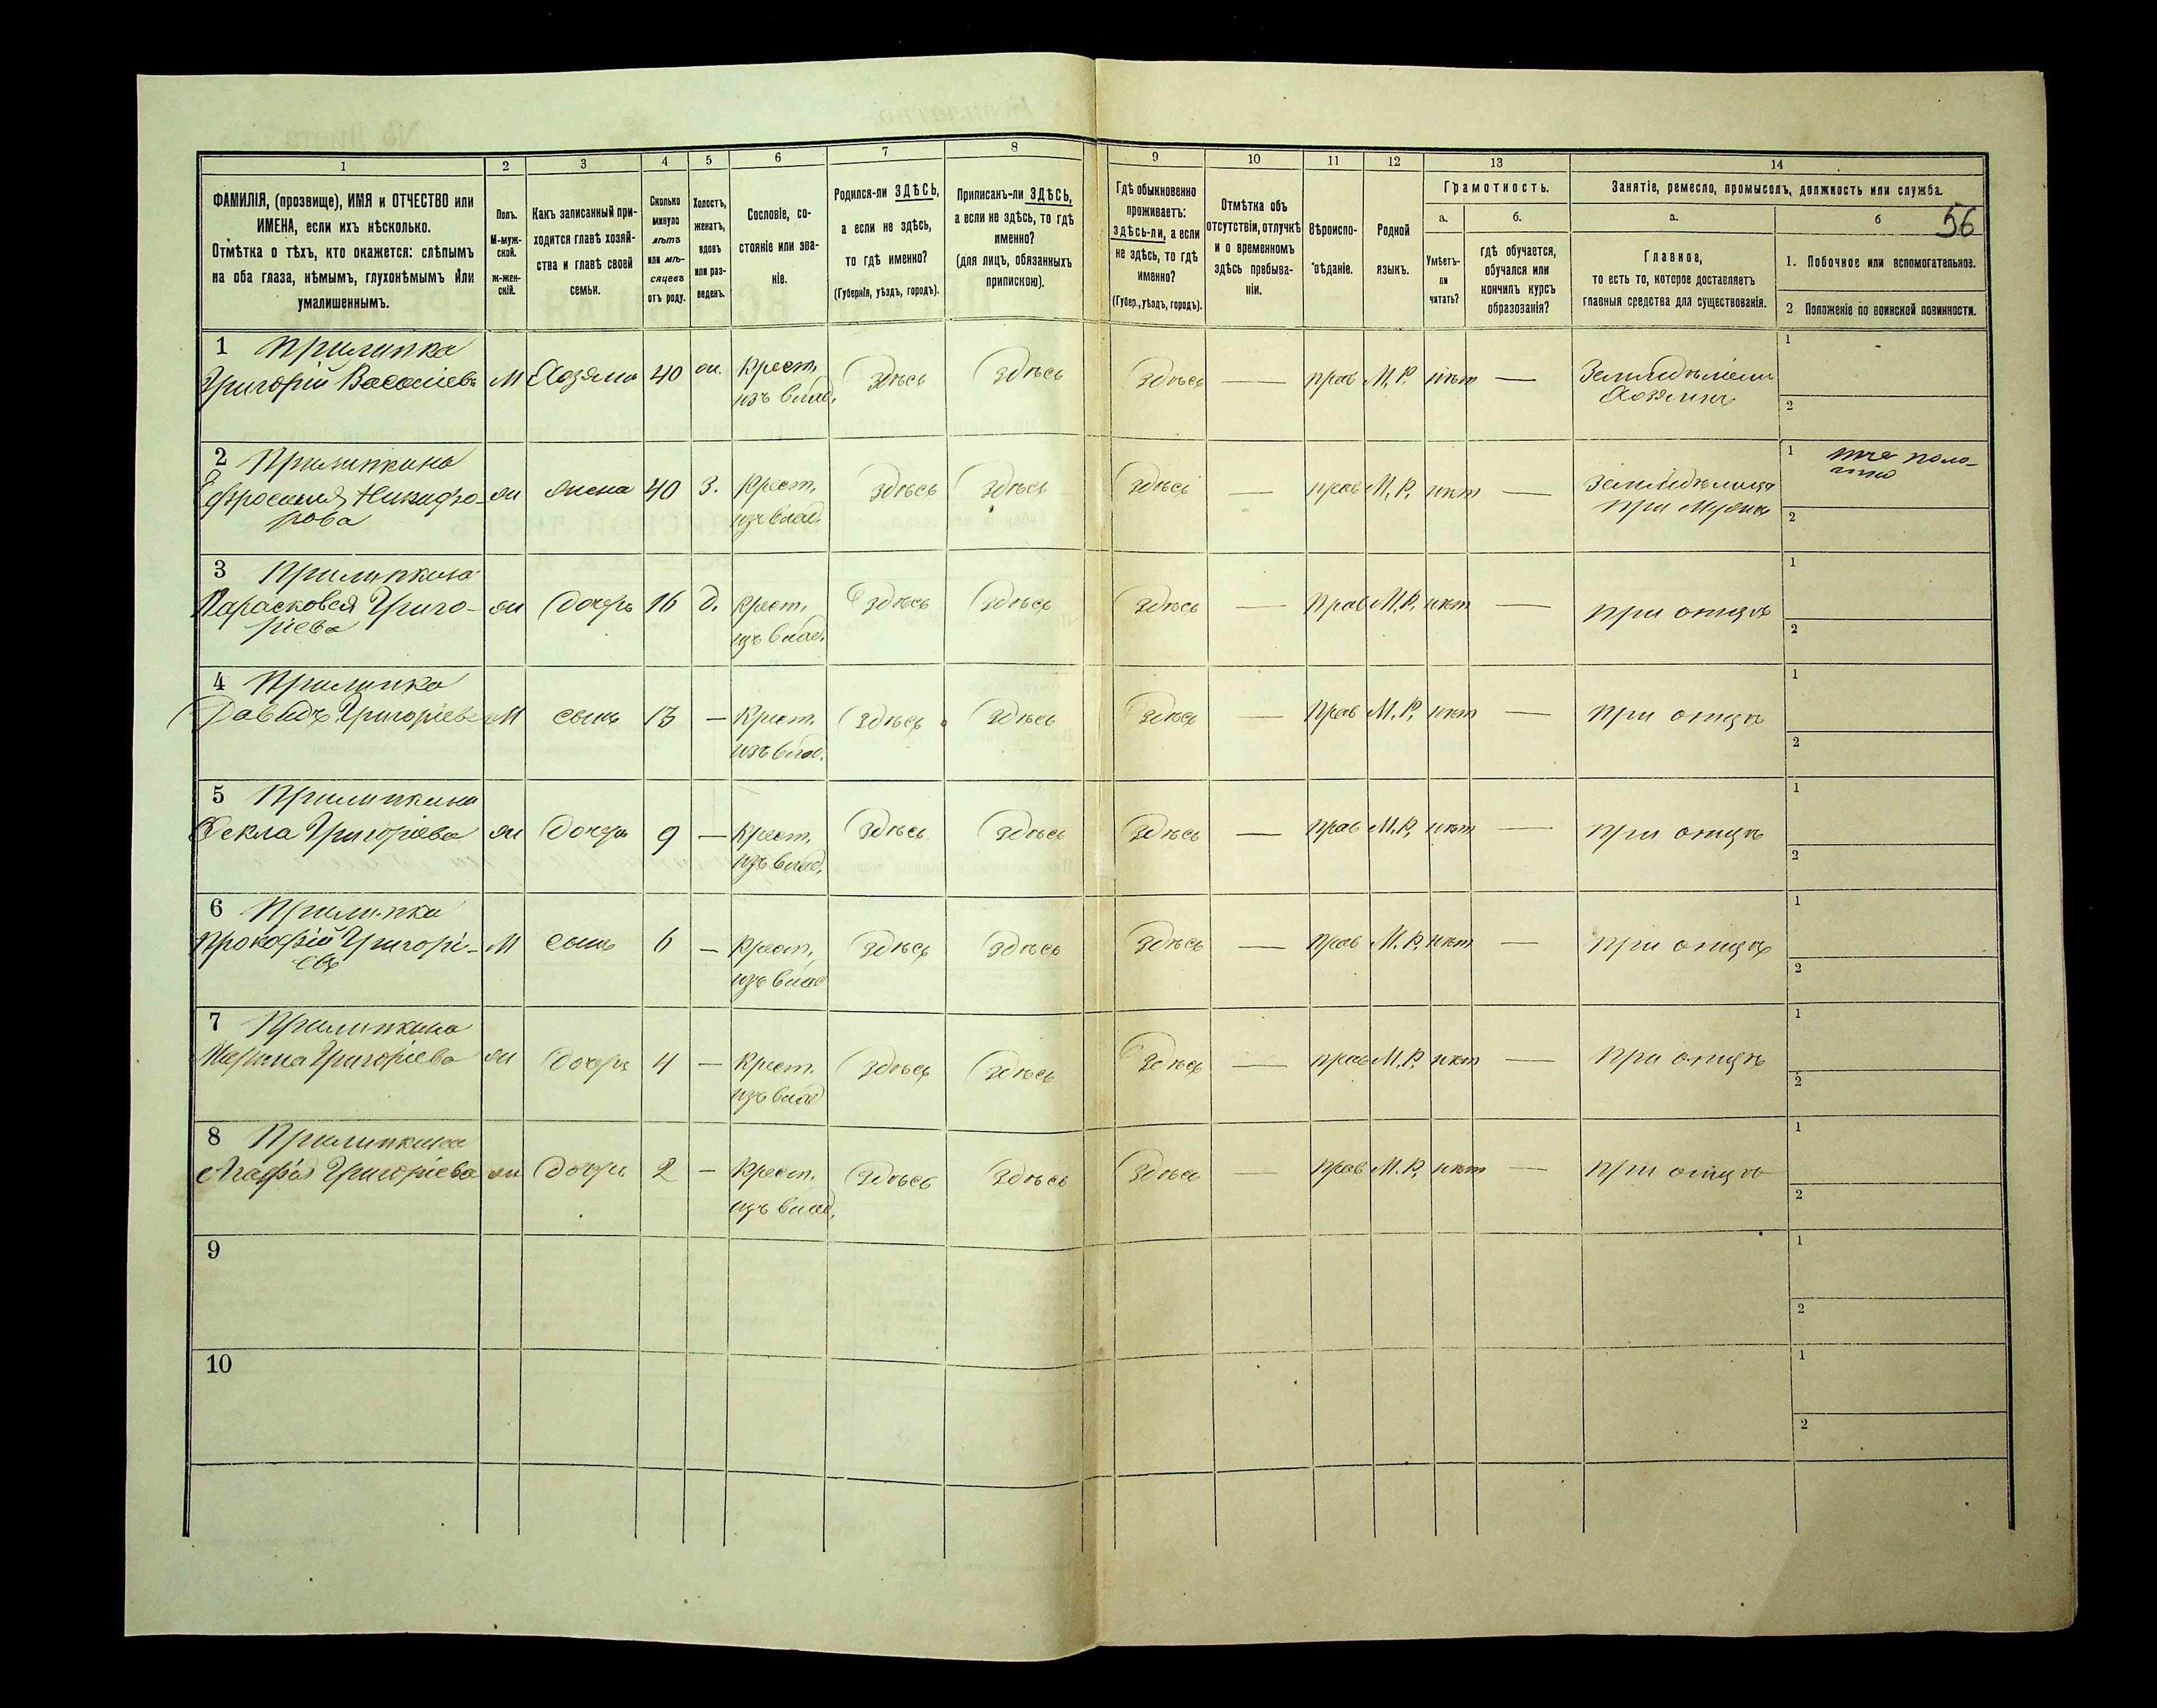 56
1 2 3 4 5 6 7 8 9 10 11 12 13 14
ФАМИЛІЯ, (прозвище), ИМЯ и ОТЧЕСТВО или
ИМЕНА, если ихъ нѣсколько.
Отмѣтка о тѣхъ, кто окажется: слѣпымъ
на оба глаза, нѣмымъ, глухонѣмымъ или
умалишеннымъ.
Полъ.
М-муж-
ской.
ж-жен-
скій.
Какъ записанный при-
ходится главѣ хозяй-
ства и главѣ своей
семьи.
Сколько
минуло
лѣтъ
или мѣ-
сяцевъ
отъ роду.
Холостъ,
женатъ,
вдовъ
или раз-
веденъ.
Сословіе, со-
стояніе или зва-
ніе.
Родился-ли ЗДѢСЬ,
а если не здѣсь,
то гдѣ именно?
(Губернія, уѣздъ, городъ).
Приписанъ-ли ЗДѢСЬ,
а если не здѣсь, то гдѣ
именно?
(для лицъ, обязанныхъ
припискою).
Гдѣ обыкновенно
проживаетъ:
здѣсь-ли, а если
не здѣсь, то гдѣ
именно?
(Губер., уѣздъ, городъ).
Отмѣтка объ
отсутствіи, отлучкѣ
и о временномъ
здѣсь пребыва-
ніи.
Вѣроиспо-
вѣданіе.
Родной
языкъ.
Грамотность.
а.
Умѣетъ-
ли
читать?
б.
гдѣ обучается,
обучался или
кончилъ курсъ
образованія?
Занятіе, ремесло, промыселъ, должность или служба.
а.
Главное,
то есть то, которое доставляетъ
главныя средства для существованія.
б
1. Побочное или вспомогательное.
2 Положеніе по воинской повинности.
1 Прилипка
Григорій Васильевъ М Хозяинъ 40 ж. Крест. Здѣсь Здѣсь Здѣсь — прав М.Р. нѣт — Земледѣлецъ 1
изъ влад. Хозяинъ 2
2 Прилипкина
Ефросинія Никифо- ж жена 40 З. Крест. Здѣсь Здѣсь Здѣсь — прав М.Р. нѣт — Земледѣлица 1
рова изъ влад. при мужѣ 2
3 Прилипкина
Парасковея Григо- ж дочерь 16 д. Крест. Здѣсь Здѣсь Здѣсь — Прав М.Р. нѣт — при отцѣ 1
ріева изъ влад. 2
4 Прилипка
Давидъ Григоріевъ М сынъ 13 — Крест. Здѣсь Здѣсь Здѣсь — Прав М.Р. нѣт — при отцѣ 1
изъ влад. 2
5 Прилипкина
Фекла Григоріева ж дочерь 9 — Крест. Здѣсь Здѣсь Здѣсь — прав М.Р. нѣт — при отцѣ 1
изъ влад. 2
6 Прилипка
Прокофій Григорі- М сынъ 6 — Крест. Здѣсь Здѣсь Здѣсь — прав М.Р. нѣт — при отцѣ 1
евъ изъ влад 2
7 Прилипкина
Марина Григоріева ж дочерь 4 — Крест. Здѣсь Здѣсь Здѣсь — прав М.Р. нѣт — при отцѣ 1
изъ влад 2
8 Прилипкина
Агафія Григоріева ж дочерь 2 — Крест. Здѣсь Здѣсь Здѣсь — прав М.Р. нѣт — при отцѣ 1
изъ влад. 2
9 1
2
10 1
2